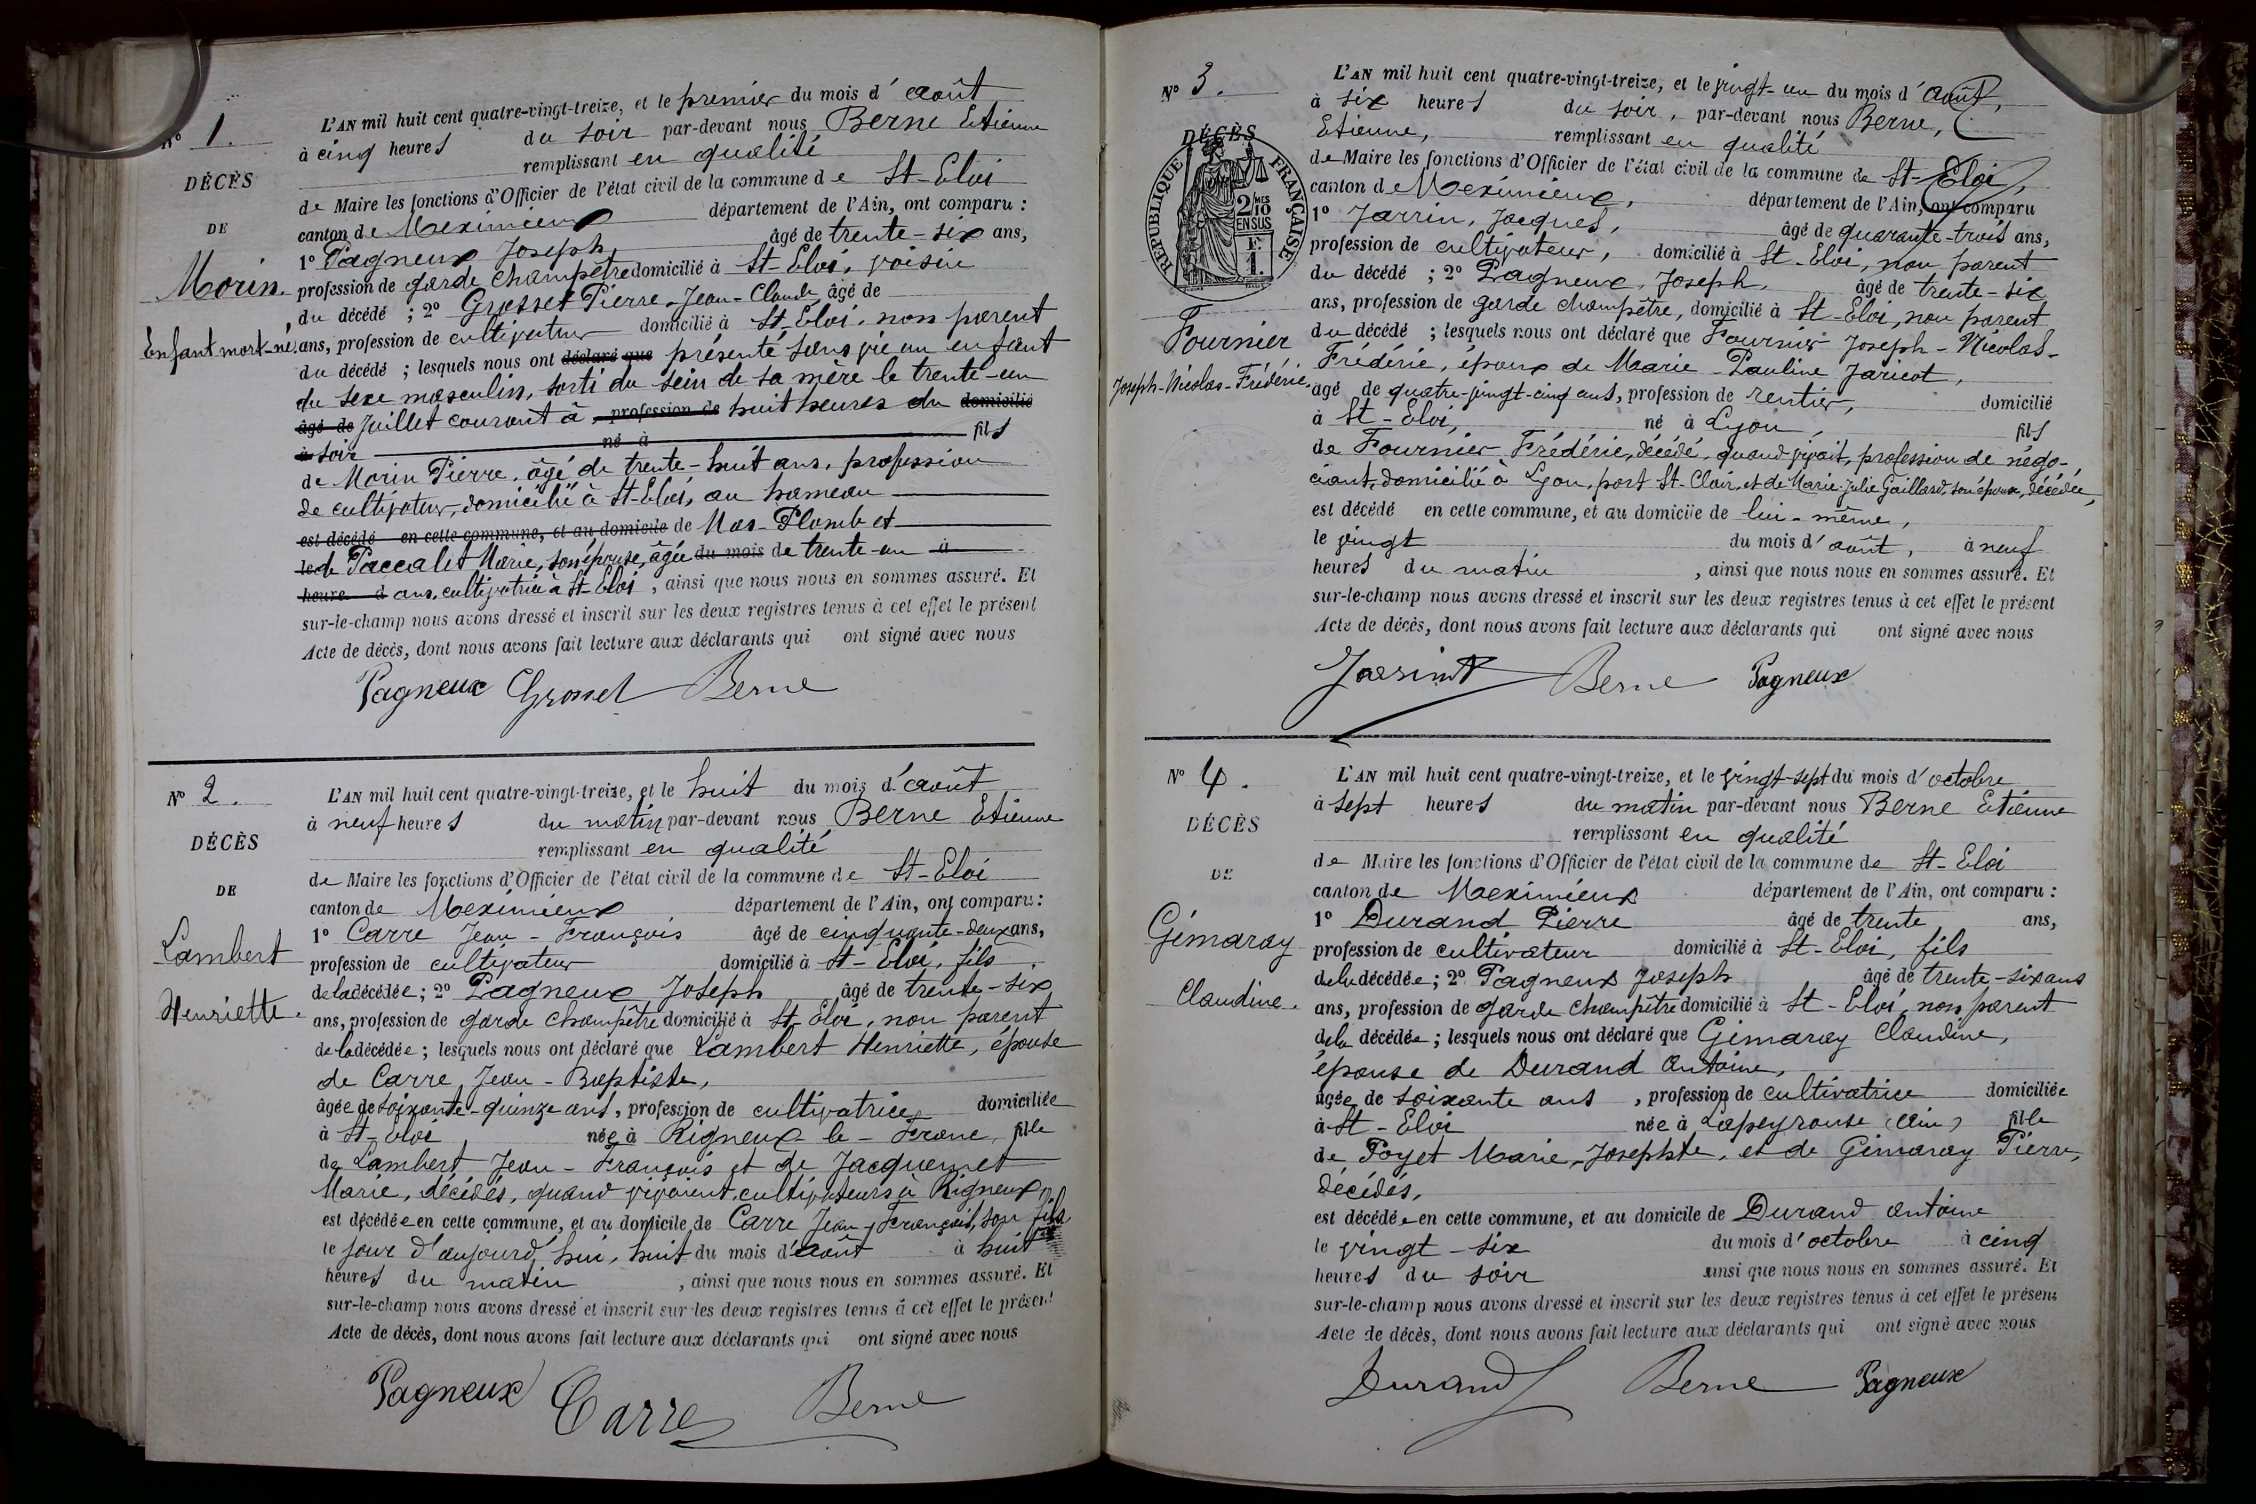 N° 1.
DÉCÈS
DE
Morin.
Enfant mort-né.
L'AN mil huit cent quatre-vingt-treize, et le premier du mois d'août
à cinq heures du soir par-devant nous Berne Etienne
remplissant en qualité
de Maire les fonctions d'Officier de l'état civil de la commune de St-Eloi
canton de Meximieux département de l'Ain, ont comparu :
1° Pagneux Joseph âgé de trente-six ans,
profession de garde champêtre domicilié à St-Eloi, voisin
du décédé ; 2° Grosset Pierre-Jean-Claude âgé de
ans, profession de cultivateur domicilié à St-Eloi, non parent
du décédé ; lesquels nous ont déclaré que présenté sans vie un enfant
du sexe masculin, sorti du sein de sa mère le trente-un
âgé de Juillet courant à profession de huit heures du domicilié
à soir né à fils
de Morin Pierre, âgé de trente-huit ans, profession
de cultivateur, domicilié à St-Eloi, au hameau
est décédé en cette commune, et au domicile de Mas-Plombet
le de Paccalet Marie, son épouse, âgée du mois de trente-un à
heure d ans, cultivatrice à St-Eloi, ainsi que nous nous en sommes assuré. Et
sur-le-champ nous avons dressé et inscrit sur les deux registres tenus à cet effet le présent
Acte de décès, dont nous avons fait lecture aux déclarants qui ont signé avec nous
Pagneux Grosset Berne
N° 2.
DÉCÈS
DE
Lambert
Henriette.
L'AN mil huit cent quatre-vingt-treize, et le huit du mois d'août
à neuf heures du matin par-devant nous Berne Etienne
remplissant en qualité
de Maire les fonctions d'Officier de l'état civil de la commune de St-Eloi
canton de Meximieux département de l'Ain, ont comparu :
1° Carre Jean-François âgé de cinquante-deux ans,
profession de cultivateur domicilié à St-Eloi, fils
de la décédée ; 2° Pagneux Joseph âgé de trente-six
ans, profession de garde champêtre domicilié à St-Eloi, non parent
de la décédée ; lesquels nous ont déclaré que Lambert Henriette, épouse
de Carre Jean-Baptiste,
âgée de soixante-quinze ans, profession de cultivatrice domiciliée
à St-Eloi, née à Rigneux-le-Franc, fille
de Lambert Jean-François et de Jacquemet
Marie, décédés, quand vivaient, cultivateurs à Rigneux
est décédée en cette commune, et au domicile de Carre Jean-François, son fils
le jour d'aujourd'hui, huit du mois d'août à huit
heures du matin, ainsi que nous nous en sommes assuré. Et
sur-le-champ nous avons dressé et inscrit sur les deux registres tenus à cet effet le présent
Acte de décès, dont nous avons fait lecture aux déclarants qui ont signé avec nous
Pagneux Carre Berne
N° 3.
DÉCÈS
RÉPUBLIQUE FRANÇAISE
2/10 MES EN SUS
Fournier
Joseph-Nicolas-Frédéric.
L'AN mil huit cent quatre-vingt-treize, et le vingt-un du mois d'août,
à six heures du soir, par-devant nous Berne,
Etienne, remplissant en qualité
de Maire les fonctions d'Officier de l'état civil de la commune de St-Eloi,
canton de Meximieux, département de l'Ain, ont comparu
1° Jarrin, Jacques, âgé de quarante-trois ans,
profession de cultivateur, domicilié à St-Eloi, non parent
du décédé ; 2° Pagneux, Joseph, âgé de trente-six
ans, profession de garde champêtre, domicilié à St-Eloi, non parent
du décédé ; lesquels nous ont déclaré que Fournier Joseph-Nicolas-
Frédéric, époux de Marie-Pauline Jaricot,
âgé de quatre-vingt-cinq ans, profession de rentier, domicilié
à St-Eloi, né à Lyon, fils
de Fournier Frédéric, décédé, quand vivait, profession de négo-
ciant, domicilié à Lyon, port St-Clair, et de Marie-Julie Gaillard, son épouse, décédée,
est décédé en cette commune, et au domicile de lui-même,
le vingt du mois d'août, à neuf
heures du matin, ainsi que nous nous en sommes assuré. Et
sur-le-champ nous avons dressé et inscrit sur les deux registres tenus à cet effet le présent
Acte de décès, dont nous avons fait lecture aux déclarants qui ont signé avec nous
Berne Pagneux
N° 4.
DÉCÈS
DE
Gimaray
Claudine.
L'AN mil huit cent quatre-vingt-treize, et le vingt-sept du mois d'octobre
à sept heures du matin par-devant nous Berne Etienne
remplissant en qualité
de Maire les fonctions d'Officier de l'état civil de la commune de St-Eloi
canton de Meximieux département de l'Ain, ont comparu :
1° Durand Pierre âgé de trente ans,
profession de cultivateur domicilié à St-Eloi, fils
de la décédée ; 2° Pagneux Joseph âgé de trente-six ans
ans, profession de garde champêtre domicilié à St-Eloi, non parent
de la décédée ; lesquels nous ont déclaré que Gimaray Claudine,
épouse de Durand Antoine,
âgée de soixante ans, profession de cultivatrice domiciliée
à St-Eloi née à Lapeyrouse (Ain) fille
de Poyet Marie-Josephte, et de Gimaray Pierre,
décédés,
est décédée en cette commune, et au domicile de Durand Antoine
le vingt-six du mois d'octobre à cinq
heures du soir ainsi que nous nous en sommes assuré. Et
sur-le-champ nous avons dressé et inscrit sur les deux registres tenus à cet effet le présent
Acte de décès, dont nous avons fait lecture aux déclarants qui ont signé avec nous
Durand Berne Pagneux